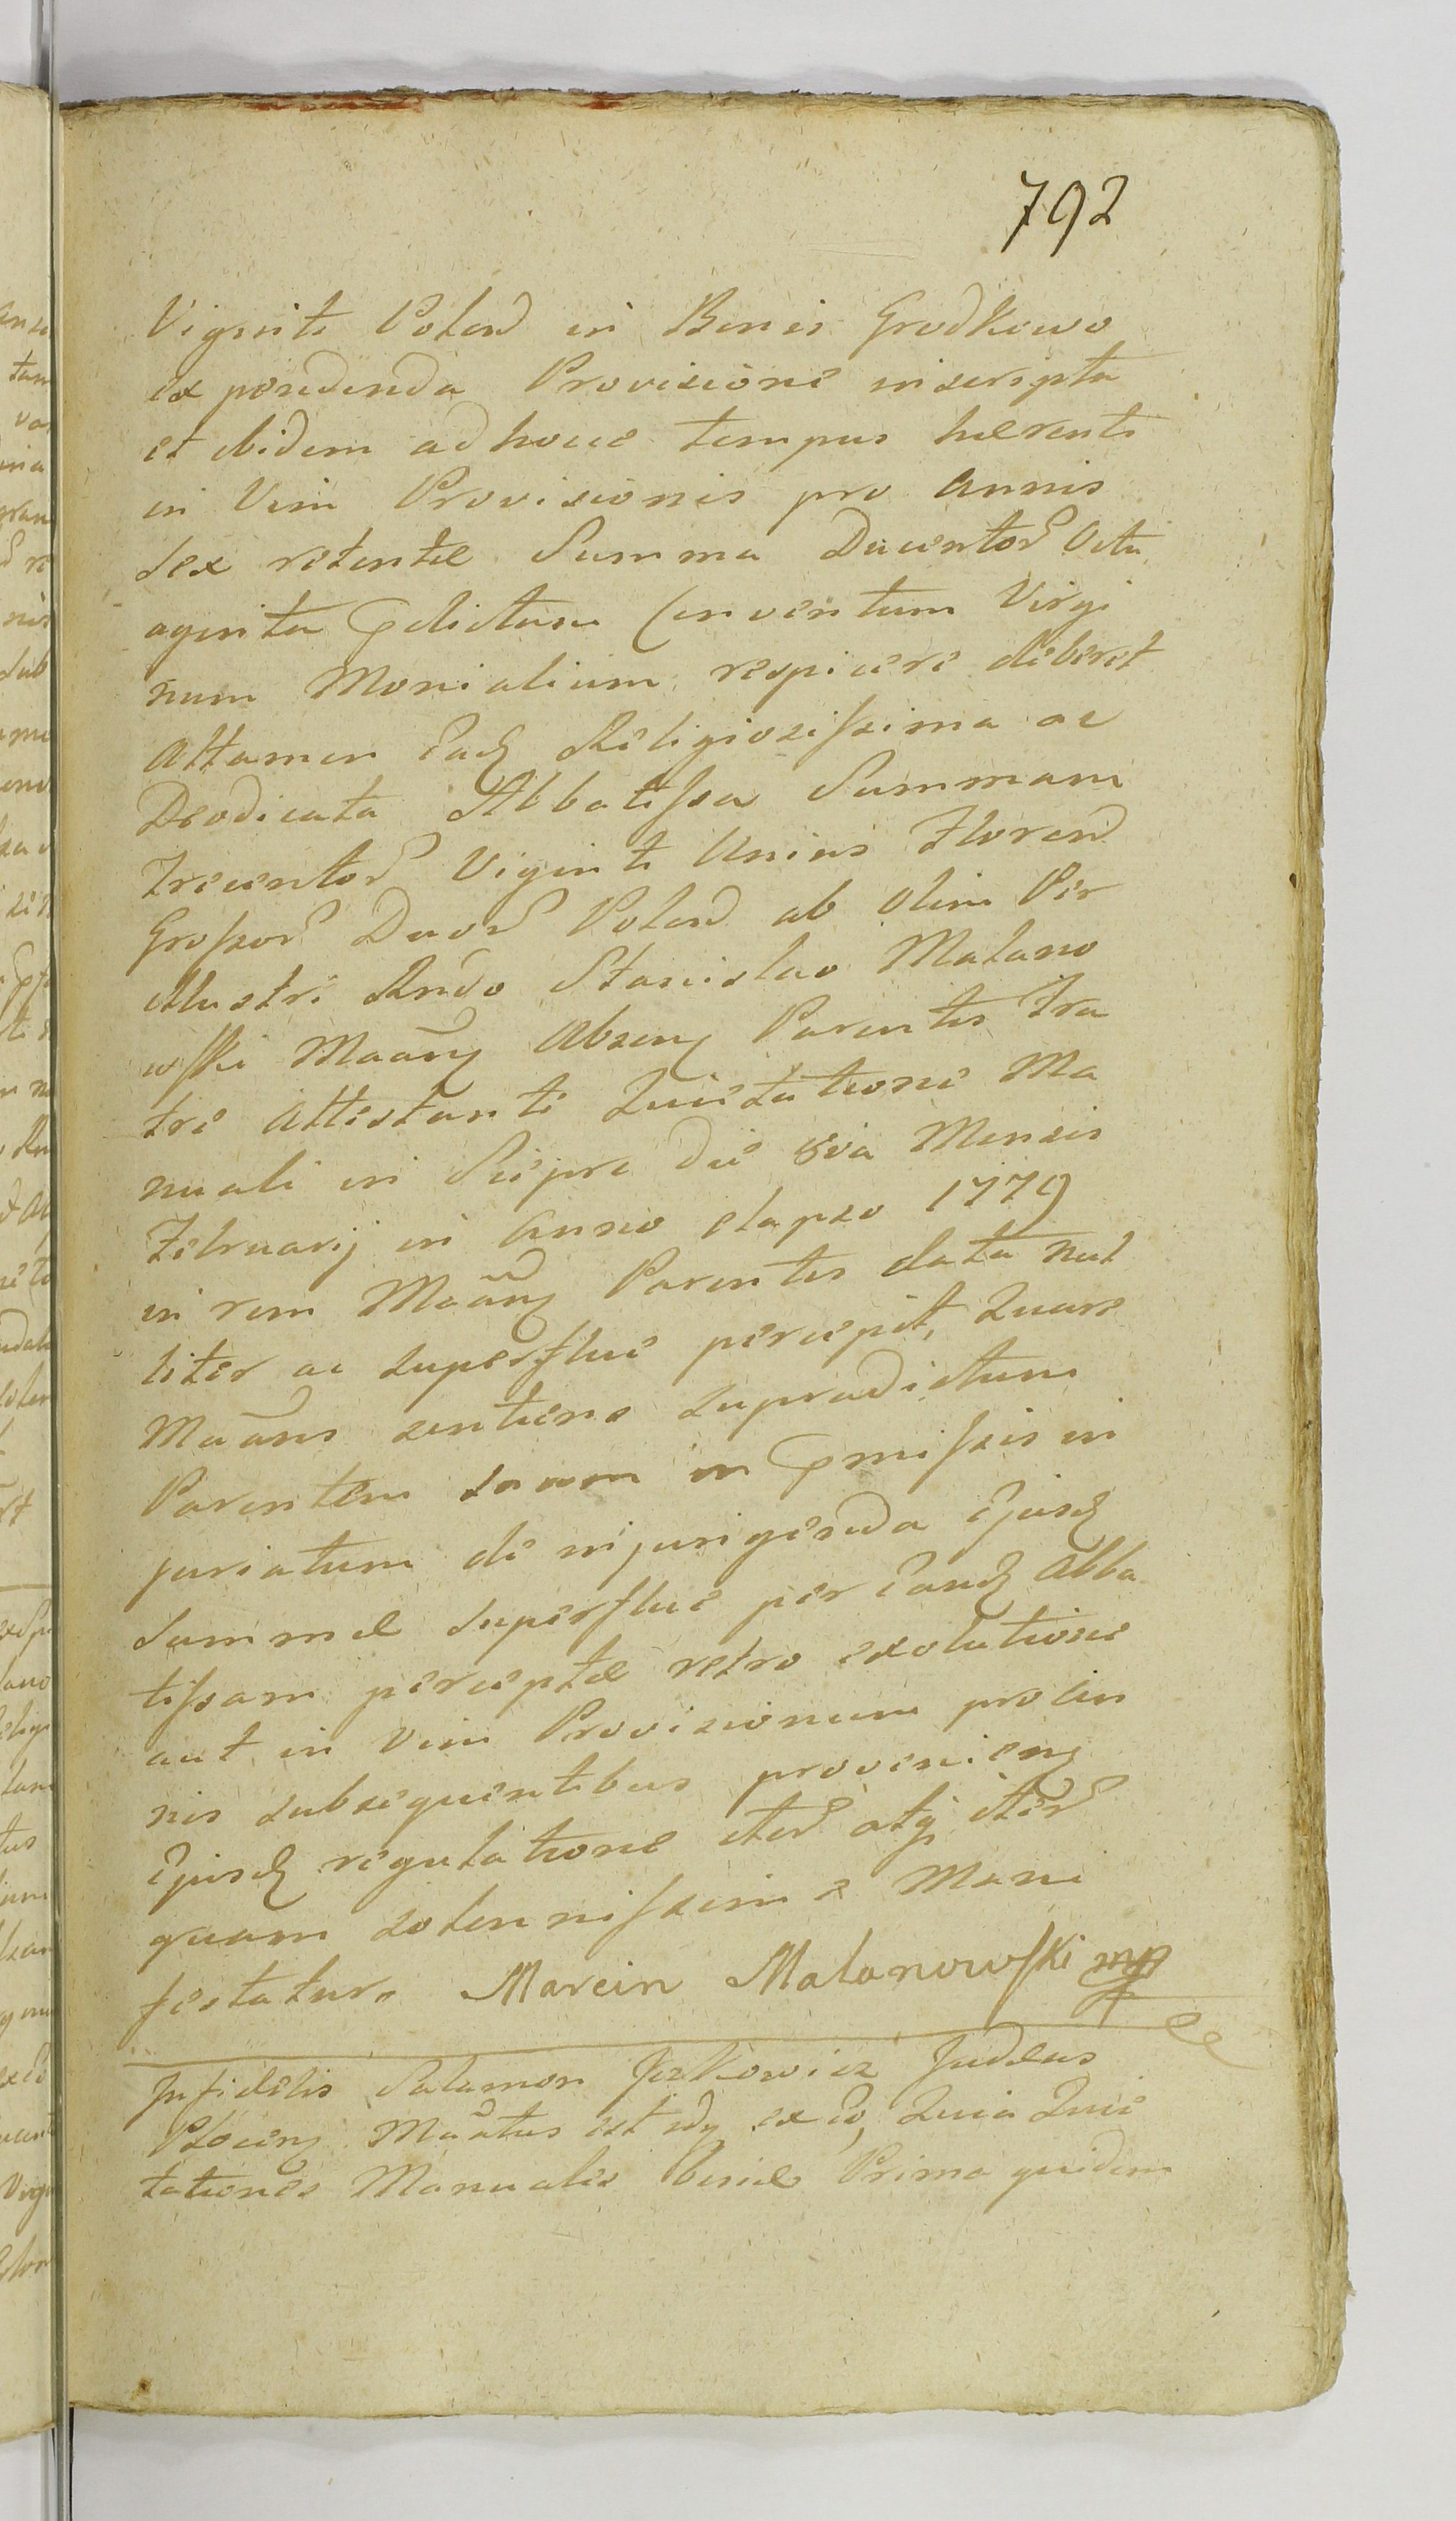 792
Viginti Polon in Bonis Grodkowo
ex pendenda Provisione inscripta
et ibidem ad hocce tempus hærenti
in Vim Provisionis pro Annis
sex retentæ Summa Ducentor Octu
aginta pdictum Conventum Virgi
num Monialium respicere deberet
Attamen Eadq Religiosissima ac
Deodicata Abbatissa Summam
Trecentor Viginti Unius Floren
Grossor Duor Polon ab Olim Per
Illustri Rndo Stanislao Malano
wski Maānq Absenq Parentis Fra
tre Attestanti Quietatione Ma
nuali in Sierpc die 8va Mensis
Februarij in Anno elapso 1779
in rem Maānq Parentis data nul
liter ac superflue percepit, Quare
Maāns sentiens supradictum
Parentem suum in pmissis in
juriatum de injungenda Ejusdq
Summæ superflue per Eandq Abba
tissam perceptæ retro exolutione
aut in Vim Provisionum pro An
nis subsequentibus provenienq
Ejusdq regulatione iter atq iter
quam solennissime Mani
festatur. Marcin Malanowski mp
Infidelis Salamon Jezkowicz Judæus
Plocenq Maātus est idq ex eo, Quia Quie
tationes Manuales binæ Prima quidem